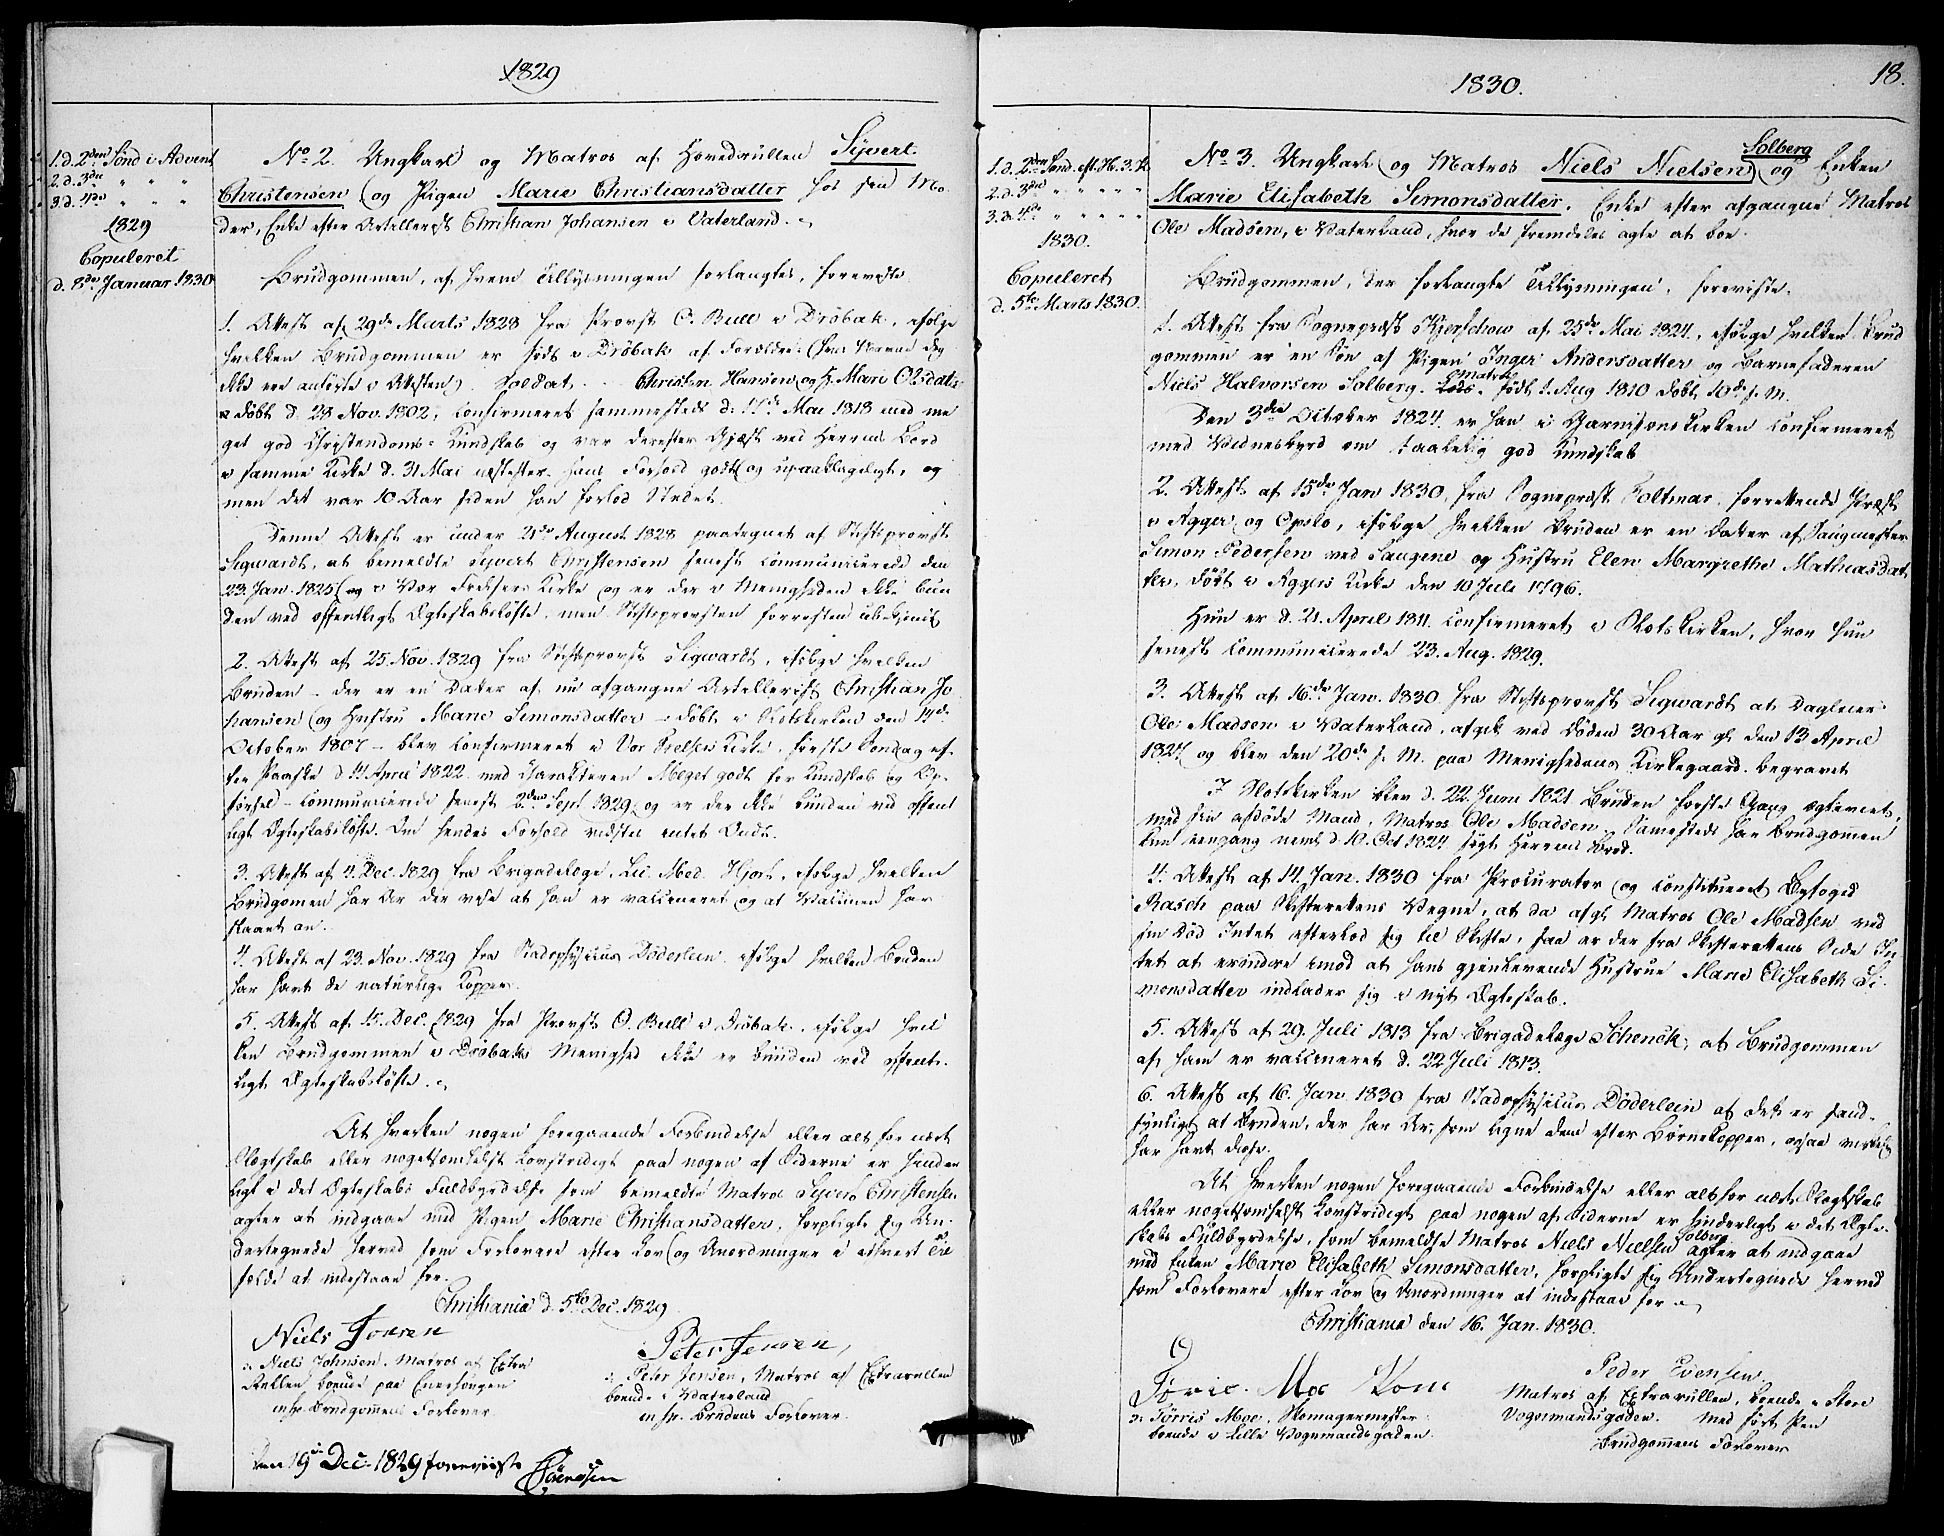 1829
1. d. 2den Sønd i Advent
2. d. 3die " " "
3. d. 4de " " "
1829
Copuleret
d. 8de Januar 1830
No 2. Ungkarl og Matros af Hovedrullen Syvert
Christensen og Pigen Marie Christiansdatter hos sin Mo-
der, Enke efter Artillerist Christian Johansen i Vaterland.
Brudgommen, af hvem Tillysningen forlangtes, foreviste
1. Attest af 29de Marts 1828 fra Provst O. Bull i Drøbak, ifølge
hvilken Brudgommen er født i Drøbak af Forældre (hvis Navne dog
ikke ere anførte i Attesten) Soldat Christen Hansen og H. Marie Olsdatr
døbt d. 28 Nov. 1802, confirmeret sammesteds d. 17de Mai 1818 med me
get god Christendoms-Kundskab og var derefter Gjæst ved Herrens Bord
i samme Kirke d. 31 Mai næstefter. Hans Forhold godt og upaaklageligt, og
men det var 10 Aar siden han forlod Stedet.
Denne Attest er under 21de August 1828 paategnet af Stiftsprovst
Sigwardt, at bemeldte Syvert Christensen senest communicerede den
23 Jan. 1825 og i Vor Frelsers Kirke og er der i Menigheden ikke bun
den ved offentligt Ægteskabsløfte, men Stiftsprovsten forresten ubekjendt
2. Attest af 25. Nov. 1829 fra Stiftsprovst Sigwardt, ifølge hvilken
Bruden - der er en Datter af nu afgangne Artillerist Christian Jo
hansen og Hustru Marie Simonsdatter - døbt i Slotskirken den 14de
October 1807 - blev confirmeret i Vor Frelsers Kirke, første Søndag ef-
ter Paaske d 14 April 1822 med Charakteren Meget godt for Kundskab og Op-
førsel - communicerede senest 2den Sept 1829, og er der ikke bunden ved offent
ligt Ægteskabsløfte. Om hendes Forhold vidstes intet Ondt.
3. Attest af 4. Dec. 1829 fra Brigadelæge, Lic. Med. Hjort, ifølge hvilken
Brudgommen har Ar der vise at han er vaccineret og at Vaccinen har
slaaet an.
4. Attest af 23. Nov. 1829 fra Stadsphysicus Døderlein, ifølge hvilken Bruden
har havt de naturlige Kopper.
5. Attest af 15. Dec. 1829 fra Provst O. Bull i Drøbak, ifølge hvil
ken Brudgommen i Drøbaks Menighed ikke er bunden ved offent-
ligt Ægteskabsløfte.
At hverken nogen foregaaende Forbindelse eller alt for nært
Slægtskab eller nogetsomhelst Lovstridigt paa nogen af Siderne er hinder
ligt i det Ægteskabs Fuldbyrdelse som bemeldte Matros Syvert Christensen
agter at indgaae med Pigen Marie Christiansdatter, forpligte sig Un-
dertegnede herved som Forlovere efter Lov og Anordninger i ethvert Til
fælde at indestaae for.
Christiania d. 5te Dec. 1829
Niels Jonsen
Niels Johnsen, Matros af Extra
Rullen boende paa Enerhougen
Brudgommens Forlover
Peter Jensen,
Peter Jensen, Matros af Extrarullen
boende i Vaterland
Brudens Forlover.
Den 19de Dec. 1829 foreviist
Sørensen
1830.
18.
1. d. 2den Sønd. e. H. 3. K.
2. d. 3die " " " "
3. d. 4de " " " "
1830.
Copuleret
d. 5te Marts 1830.
Solberg
No 3. Ungkarl og Matros Niels Nielsen og Enken
Marie Elisabeth Simonsdatter. Enke efter afgangne Matros
Ole Madsen, i Vaterland, hvor de fremdeles agte at boe.
Brudgommen, der forlangte Tillysningen, foreviste.
1. Attest fra Sognepræst Kjerschow af 25de Mai 1824, ifølge hvilken Brud
gommen er en Søn af Pigen Inger Andersdatter og Barnefaderen
Matros
Niels Halvorsen Solberg. født 1. Aug 1810 døbt 10de s. M.
Den 3die October 1824 er han i Garnisonskirken confirmeret
med Vidnesbyrd om taalelig god Kundskab
2. Attest af 15de Jan 1830 fra Sognepræst Voltmar, forrettende Præst
i Agger og Opslo, ifølge hvilken Bruden er en Datter af Saugmester
Simon Pedersen ved Saugene og Hustru Elen Margrethe Mathiasdat
ter, døbt i Aggers Kirke den 10 Juli 1796.
Hun er d. 21. April 1811 confirmeret i Slotskirken, hvor hun
senest communicerede 23. Aug. 1829.
3. Attest af 16de Jan. 1830 fra Stiftsprovst Sigwardt at Dagleier
Ole Madsen i Vaterland, afgik ved Døden 30 Aar gl. den 13 April
1827 og blev den 20de s. M. paa Menighedens Kirkegaard begravet
I Slotskirken blev d. 22 Juni 1821 Bruden første Gang ægteviet,
med sin afdøde Mand, Matros Ole Madsen. Sammesteds har Brudgommen
kun eengang neml. d. 10. Oct 1824 søgt Herrens Bord.
4. Attest af 14. Jan. 1830 fra Procurator og constitueret Byfoged
Rasch paa Skifterettens Vegne, at da afg. Matros Ole Madsen ved
sin Død Intet efterlod sig til Skifte, saa er der fra Skifterettens Side In
tet at erindre imod at hans gjenlevende Hustrue Marie Elisabeth Si-
monsdatter indlader sig i nyt Ægteskab.
5. Attest af 29. Juli 1813 fra Brigadelæge Schenck, at Brudgommen
af ham er vaccineret d. 22 Juli 1813.
6. Attest af 16. Jan. 1830 fra Stadsphysicus Døderlein at det er sand-
synligt at Bruden, der har Ar, som ligne dem efter Børnekopper, ogsaa virkelig
har havt disse.
At hverken nogen foregaaende Forbindelse eller altfor nært Slægtskab
eller nogetsomhelst Lovstridigt paa nogen af Siderne er hinderligt i det Ægte-
Solberg
skabs Fuldbyrdelse, som bemeldte Matros Niels Nielsen agter at indgaae
med Enken Marie Elisabeth Simonsdatter, forpligte sig Undertegnede herved
som Forlovere efter Lov og Anordninger at indestaae for
Christiania den 16. Jan. 1830.
Tøris Moe
Tørris Moe, Skomagermester
boende i Lille Vognmandsgaden.
Peder Evensen
Matros af Extrarullen, boende i Store
Vognmandsgaden. med ført Pen
Brudgommens Forlover